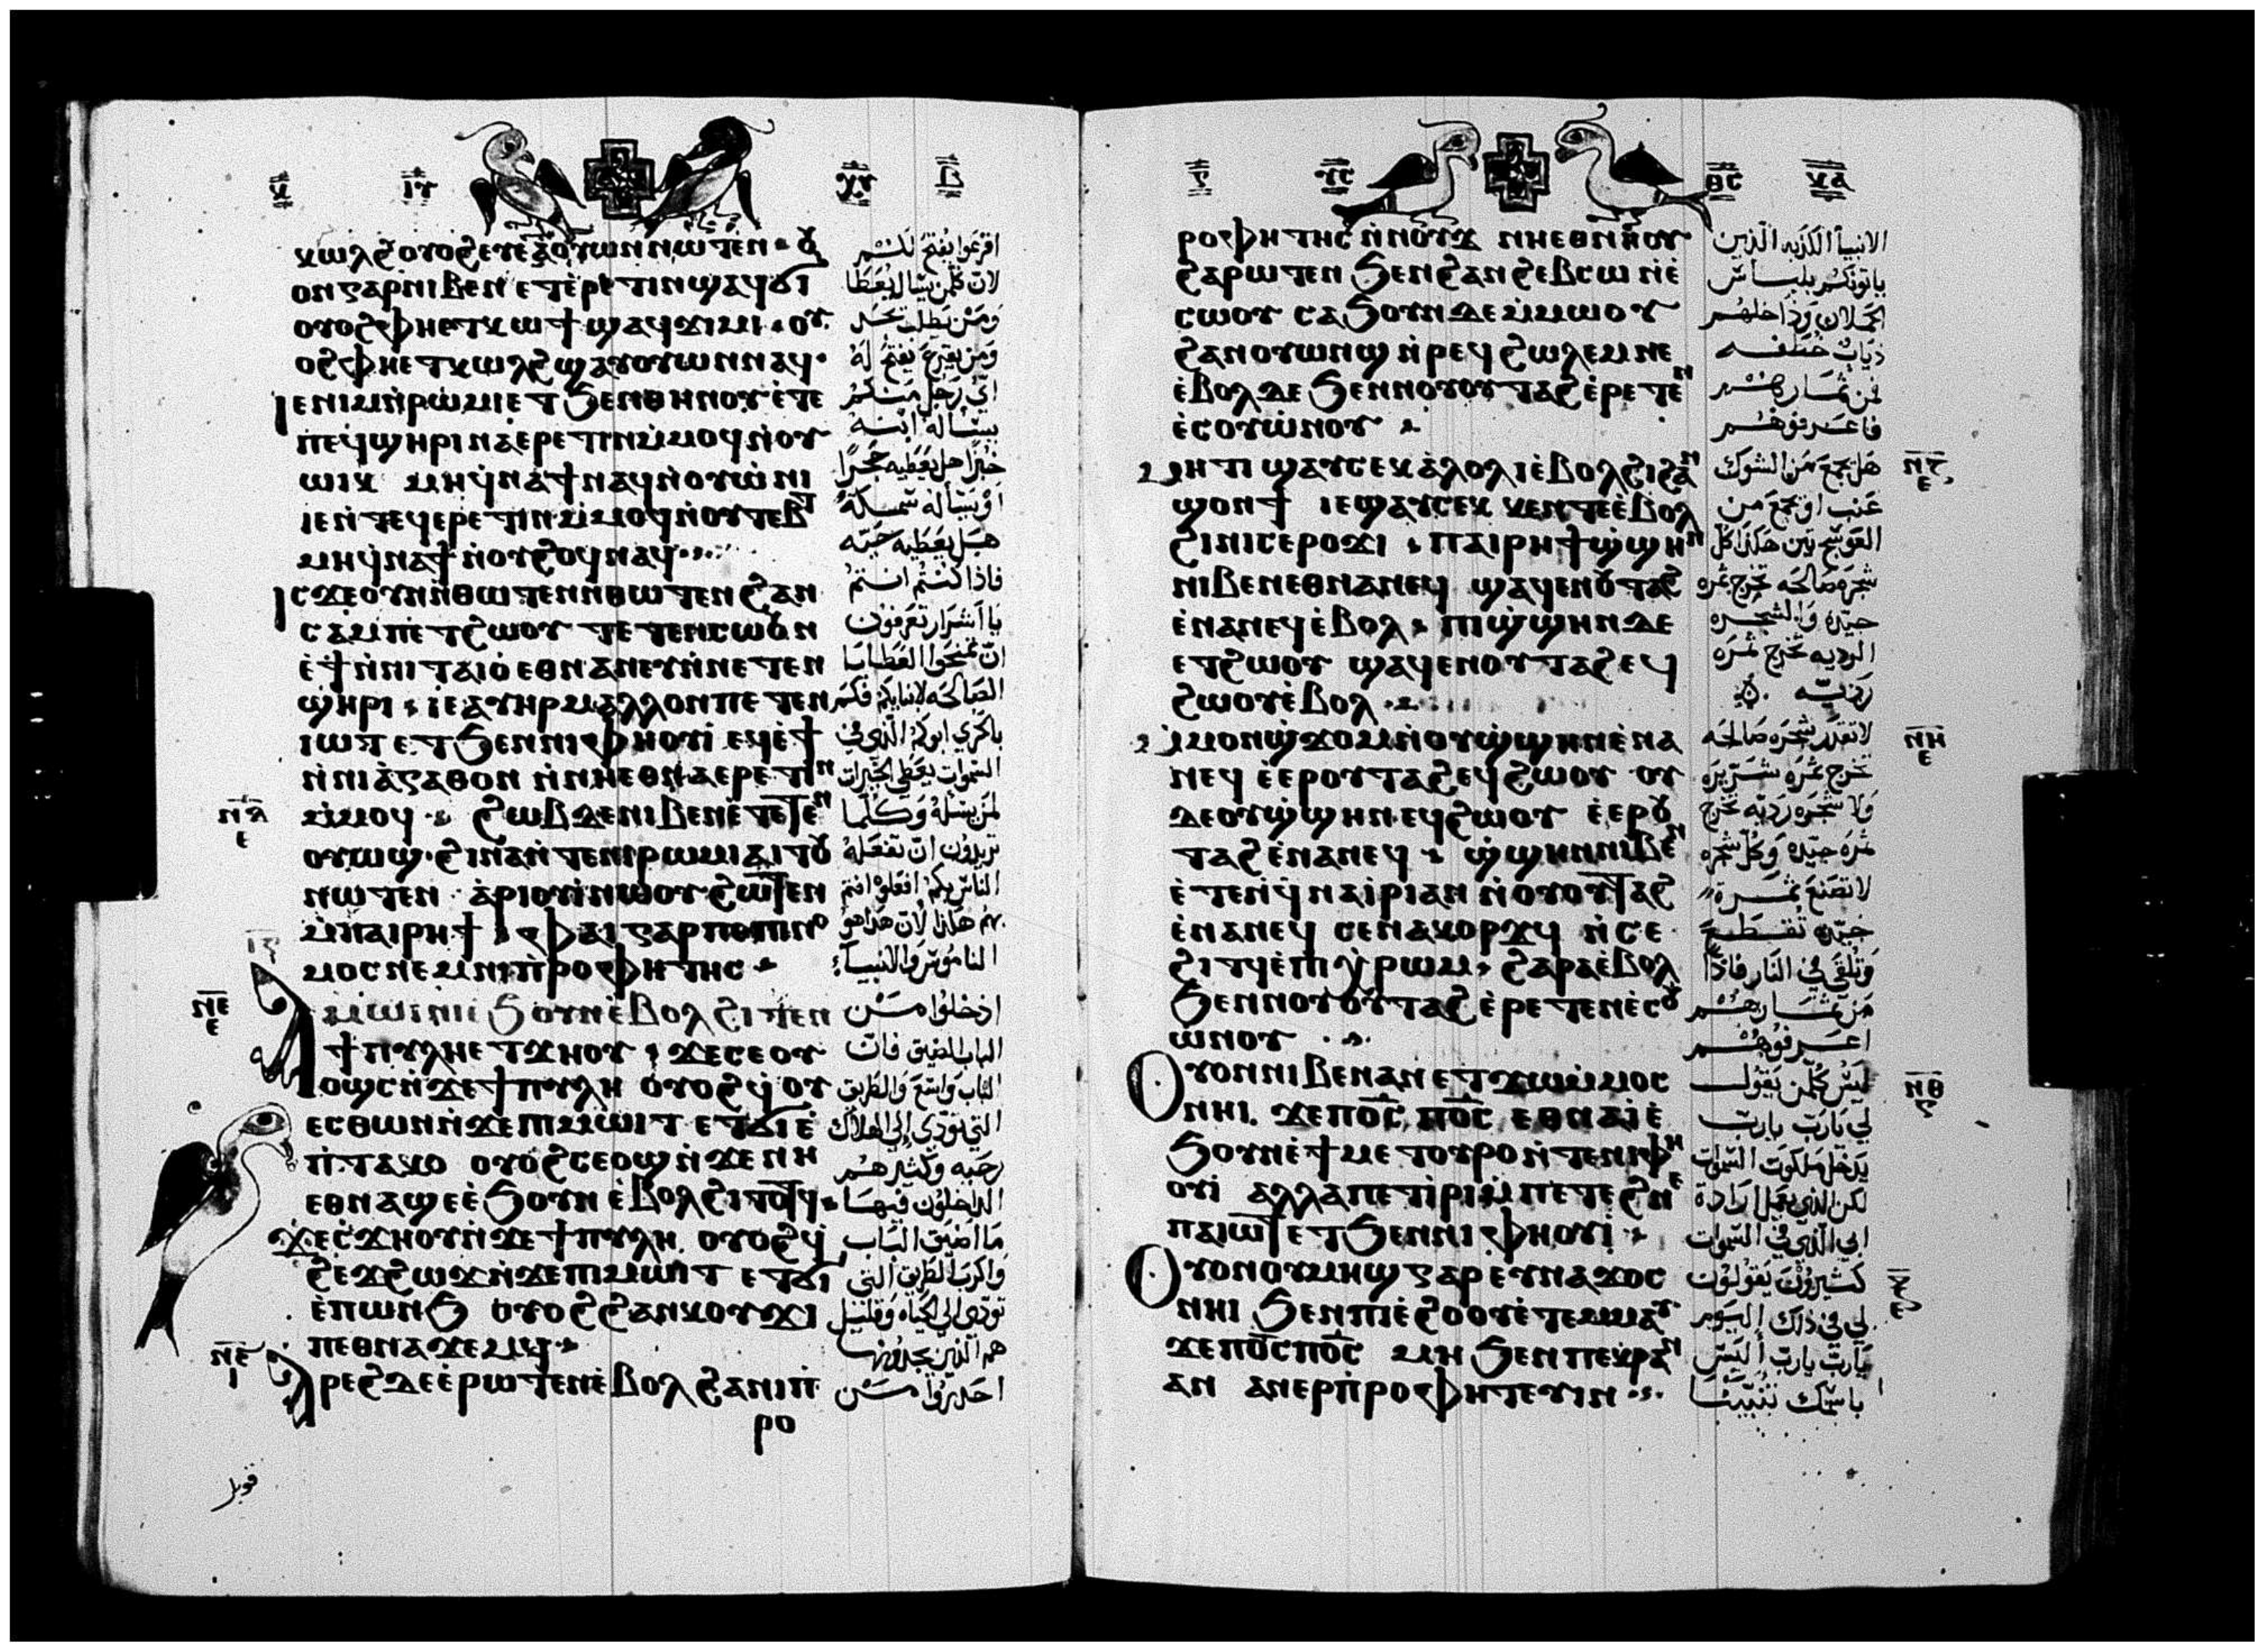 ⲕⲱⲗϩ ⲟⲩⲟϩ ⲉⲩⲉⲁⲟⲩⲱⲛ ⲛⲱⲧⲉⲛ
ⲟⲛ ⲅⲁⲣ ⲛⲓⲃⲉⲛ ⲉⲧⲉⲣⲉⲧⲓⲛ ϣⲁϥϭⲓ
ⲟⲩⲟϩ ⲫⲏⲉⲧⲕⲱϯ ϣⲁϥϫⲓⲙⲓ ⲟⲩ
ⲟϩ ⲫⲏⲉⲧⲕⲱⲗϩ ϣⲁⲩⲟⲩⲱⲛ ⲛⲁϥ
ⲓⲉ ⲛⲓⲙ ⲛ̇ⲣⲱⲙⲓ ⲉⲧϧⲉⲛ ⲑⲏⲛⲟⲩ ⲉ̇ⲧⲉ
ⲡⲉϥϣⲏⲣⲓ ⲛⲁⲉⲣⲉⲧⲓⲛ ⲙ̇ⲙⲟϥ ⲛ̇ⲟⲩ
ⲱⲓⲕ ⲙⲏ ϥ̇ⲛⲁϯ ⲛⲁϥ ⲛ̇ⲟⲩⲱ̇ⲛⲓ
ⲓⲉ ⲛ̇ⲧⲉϥⲉⲣⲉⲧⲓⲛ ⲙ̇ⲙⲟϥ ⲛ̇ⲟⲩⲧⲉⲃⲧ
ⲙⲏ ϥ̇ⲛⲁϯ ⲛ̇ⲟⲩϩⲟϥ ⲛⲁϥ
ⲓⲥϫⲉ ⲟⲩⲛ ⲛ̇ⲑⲱⲧⲉⲛ ⲛⲑⲱⲧⲉⲛ ϩⲁⲛ
ⲥⲁⲙⲡⲉⲧϩⲱⲟⲩ ⲧⲉⲧⲉⲛⲥⲱⲟⲩⲛ
ⲉ̇ϯ ⲛ̇ⲛⲓⲧⲁⲓⲟ̇ ⲉⲑⲛⲁⲛⲉⲩ ⲛ̇ⲛⲉⲧⲉⲛ
ϣⲏⲣⲓ ⲓⲉ ⲁⲩⲏⲣ ⲙⲁⲗⲗⲟⲛ ⲡⲉⲧⲉⲛ
ⲓⲱⲧ ⲉⲧϧⲉⲛ ⲛⲓⲫⲏⲟⲩⲓ̇ ⲉϥⲉ̇ϯ
ⲛ̇ⲛⲓⲁ̇ⲅⲁⲑⲟⲛ ⲛ̇ⲛⲏⲉⲑⲛⲁⲉⲣⲉⲧⲓⲛ
ⲙ̇ⲙⲟϥ ϩⲱⲃ ⲇⲉ ⲛⲓⲃⲉⲛ ⲉ̇ⲧⲉⲧⲉⲛ
ⲟⲩⲱϣ ϩⲓⲛⲁ ⲛ̇ⲧⲉ ⲛⲓⲣⲱⲙⲓ ⲁⲓⲧⲟⲩ
ⲛⲱⲧⲉⲛ ⲁ̇ⲣⲓⲟⲩⲓ̇ ⲛⲱⲟⲩ ϩⲱⲧⲉⲛ
ⲙ̇ⲡⲁⲓⲣⲏϯ ⲫⲁⲓ ⲅⲁⲣ ⲡⲉ ⲡⲓⲛⲟ
ⲙⲟⲥ ⲛⲉⲙ ⲛⲓⲡ̇ⲣⲟⲫⲏⲧⲏⲥ
ⲁⲙⲱⲓⲛⲓ ⲉ̇ϧⲟⲩⲛ ⲉ̇ⲃⲟⲗ ϩⲓⲧⲉⲛ
ϯⲡⲩⲗⲏ ⲉⲧϫⲏⲟⲩ ϫⲉ ⲥⲉⲟⲩ
ⲟϣⲥ ⲛ̇ϫⲉ ϯⲡⲩⲗⲏ ⲟⲩⲟϩ ϥ̇ⲟⲩ
ⲉⲥⲑⲱⲛ ⲛ̇ϫⲉ ⲡⲓⲙⲱⲓⲧ ⲉⲧϭⲓ ⲉ̇
ⲡ̇ⲧⲁⲕⲟ ⲟⲩⲟϩ ⲥⲉⲟϣ ⲛ̇ϫⲉ ⲛⲏ
ⲉⲑⲛⲁϣⲉ ⲉ̇ϧⲟⲩⲛ ⲉ̇ⲃⲟⲗ ϩⲓⲧⲟⲧϥ
ϫⲉ ⲥ̇ϫⲏⲟⲩ ⲛ̇ϫⲉ ϯⲡⲩⲗⲏ ⲟⲩⲟϩ ϥ̇
ϩⲉϫϩⲱϫ ⲛ̇ϫⲉ ⲡⲓⲙⲱⲓⲧ ⲉⲧϭⲓ
ⲉ̇ⲡⲱⲛϧ ⲟⲩⲟϩ ϩⲁⲛⲕⲟⲩϫⲓ
ⲡⲉⲑⲛⲁϫⲉⲙϥ
ⲁⲣⲉϩ ⲇⲉ ⲉ̇ⲣⲱⲧⲉⲛ ⲉ̇ⲃⲟⲗ ϩⲁ ⲛⲓⲡ̇
ⲣⲟ
اقرعوا يفتح لكم
لان كلمن يسال يعطا
ومن يطلب يجد
ومن يقرع يفتح له
اي رجل منكم
يساله ابنه
خبزا هل يعطيه حجرا
او يساله سمكة
هل يعطيه حيه
فاذا كنتم انتم
يا اشرار تعرفون
ان تمنحوا العطايا
الصالحه لابنايكم فكم
بالحري ابوكم الذي في
السموات يعطي الخيرات
لمن يسله وكلما
تريدون ان تفعله
الناس بكم افعلوه انتم
بهم هكذا لان هذا هو
الناموس والانبياء
ادخلوا من
الباب الضيق فان
الباب واسع والطريق
التي تودي الي الهلاك
رحبه وكثير هم
الداخلون فيها
ما اضيق الباب
واكرب الطريق التي
تودي الي الحياه وقليل
هم الذين يجدونها
احذروا من
ⲣⲟⲫⲏⲧⲏⲥ ⲛ̇ⲛⲟⲩϫ ⲛⲏⲉⲑⲛⲏⲟⲩ
ϩⲁⲣⲱⲧⲉⲛ ϧⲉⲛ ϩⲁⲛϩⲉⲃⲥⲱ ⲛ̇ⲉ̇
ⲥⲱⲟⲩ ⲥⲁϧⲟⲩⲛ ⲇⲉ ⲙ̇ⲙⲱⲟⲩ
ϩⲁⲛⲟⲩⲱⲛϣ ⲛ̇ⲣⲉϥϩⲱⲗⲉⲙ ⲛⲉ
ⲉ̇ⲃⲟⲗ ⲇⲉ ϧⲉⲛ ⲛⲟⲩⲟⲩⲧⲁϩ ⲉ̇ⲣⲉⲧⲉⲛ
ⲉ̇ⲥⲟⲩⲱ̇ⲛⲟⲩ
ⲙⲏⲧⲓ ϣⲁⲩⲥⲉⲕ ⲁ̇ⲗⲟⲗⲓ ⲉ̇ⲃⲟⲗ ϩⲓ ϩⲁⲛ
ϣⲟⲛϯ ⲓⲉ ϣⲁⲩⲥⲉⲕ ⲕⲉⲛⲧⲉ ⲉ̇ⲃⲟⲗ
ϩⲓ ⲛⲓⲥⲉⲣⲟϫⲓ ⲡⲁⲓⲣⲏϯ ϣ̇ϣⲏⲛ
ⲛⲓⲃⲉⲛ ⲉⲑⲛⲁⲛⲉϥ ϣⲁϥⲉⲛ ⲟⲩⲧⲁϩ
ⲉ̇ⲛⲁⲛⲉϥ ⲉ̇ⲃⲟⲗ ⲡⲓϣ̇ϣⲏⲛ ⲇⲉ
ⲉⲧϩⲱⲟⲩ ϣⲁϥⲉⲛ ⲟⲩⲧⲁϩ ⲉϥ
ϩⲱⲟⲩ ⲉ̇ⲃⲟⲗ
ⲙ̇ⲙⲟⲛ ϣ̇ϫⲟⲙ ⲛ̇ⲟⲩϣ̇ϣⲏⲛ ⲛ̇ⲉ̇ⲛⲁ
ⲛⲉϥ ⲉ̇ⲉⲣ ⲟⲩⲧⲁϩ ⲉϥϩⲱⲟⲩ ⲟⲩ
ⲇⲉ ⲟⲩϣ̇ϣⲏⲛ ⲉϥϩⲱⲟⲩ ⲉ̇ⲉⲣ ⲟⲩ
ⲧⲁϩ ⲉ̇ⲛⲁⲛⲉϥ ϣ̇ϣⲏⲛ ⲛⲓⲃⲉⲛ
ⲉ̇ⲧⲉⲛ ϥ̇ⲛⲁⲓ̇ⲣⲓ ⲁⲛ ⲛ̇ⲟⲩⲟⲩⲧⲁϩ
ⲉ̇ⲛⲁⲛⲉϥ ⲥⲉⲛⲁⲕⲟⲣϫϥ ⲛ̇ⲥⲉ
ϩⲓⲧϥ ⲉ̇ⲡⲓⲭ̇ⲣⲱⲙ ϩⲁⲣⲁ ⲉ̇ⲃⲟⲗ
ϧⲉⲛ ⲛⲟⲩⲟⲩⲧⲁϩ ⲉ̇ⲣⲉⲧⲉⲛⲉ̇ⲥⲟⲩ
ⲱ̇ⲛⲟⲩ
ⲟⲩⲟⲛ ⲛⲓⲃⲉⲛ ⲁⲛ ⲉⲧϫⲱ ⲙ̇ⲙⲟⲥ
ⲛⲏⲓ ϫⲉ ⲡⲟ̅ⲥ̅ ⲡⲟ̅ⲥ̅ ⲉⲑⲛⲁⲓ̇ ⲉ̇
ϧⲟⲩⲛ ⲉ̇ϯⲙⲉⲧⲟⲩⲣⲟ ⲛ̇ⲧⲉ ⲛⲓⲫⲏ
ⲟⲩⲓ̇ ⲁⲗⲗⲁ ⲡⲉⲧⲓ̇ⲣⲓ ⲙ̇ⲡⲉⲧⲉϩⲛⲉ
ⲡⲁⲓⲱⲧ ⲉⲧϧⲉⲛ ⲛⲓⲫⲏⲟⲩⲓ̇
ⲟⲩⲟⲛ ⲟⲩⲙⲏϣ ⲅⲁⲣ ⲉⲩⲛⲁϫⲟⲥ
ⲛⲏⲓ ϧⲉⲛ ⲡⲓⲉ̇ϩⲟⲟⲩ ⲉ̇ⲧⲉⲙⲙⲁⲩ
ϫⲉ ⲡⲟ̅ⲥ̅ ⲡⲟ̅ⲥ̅ ⲙⲏ ϧⲉⲛ ⲡⲉⲕⲣⲁⲛ
ⲁⲛ ⲁⲛⲉⲣⲡ̇ⲣⲟⲫⲏⲧⲉⲩⲓⲛ
الانبيا الكذبه الذين
ياتونكم بلباس
الحملان وداخلهم
دياب خطفه
فمن ثمارهم
فاعرفوهم
هل يجمع من الشوك
عنب او يجمع من
العوسج تين هكذا كل
شجره صالحه تخرج ثمره
جيده والشجره
الرديه تخرج ثمره
رديه
لا تقدر شجره صالحه
تخرج ثمره شريره
ولا شجره رديه تخرج
ثمره جيده وكل شجره
لا تصنع ثمرة
جيده تقطع
وتلقي في النار فاذا
من ثمارهم
اعرفوهم
ليس كلمن يقول
لي يارب يارب
يدخل ملكوت السموات
لكن الذي يعمل ارادة
ابي الذي في السموات
كثيرون يقولون
لي في ذلك اليوم
يارب يارب اليس
باسمك تنبينا